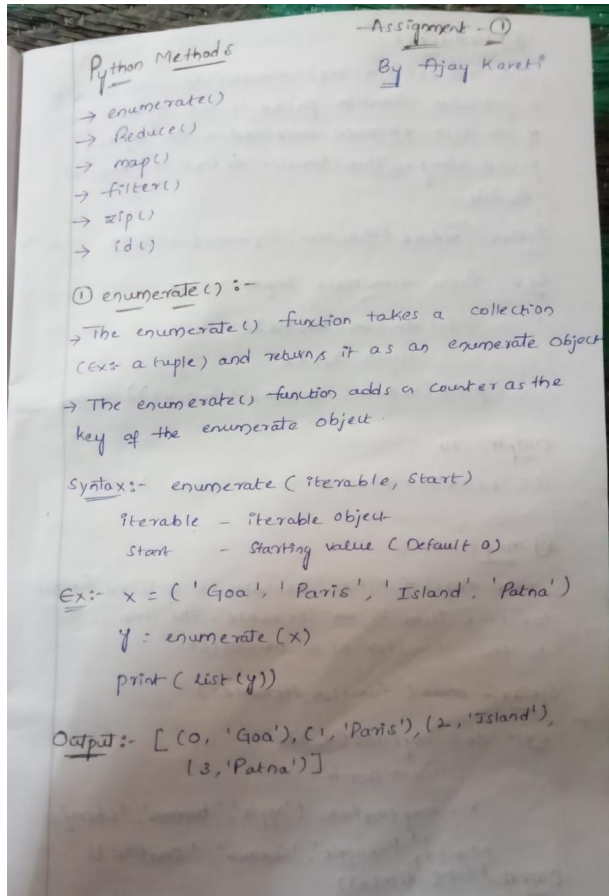 Assignment - ①
Python Methods
By Ajay Kareti
→ enumerate()
→ Reduce()
→ map()
→ filter()
→ zip()
→ id()
① enumerate() :-
→ The enumerate() function takes a collection
(Ex:- a tuple) and returns it as an enumerate object
→ The enumerate() function adds a counter as the
key of the enumerate object.
Syntax:- enumerate (iterable, start)
iterable - iterable object
start - starting value (Default 0)
Ex:- x = ('Goa', 'Paris', 'Island', 'Patna')
y = enumerate (x)
print (list(y))
Output:- [(0, 'Goa'), (1, 'Paris'), (2, 'Island'),
(3, 'Patna')]